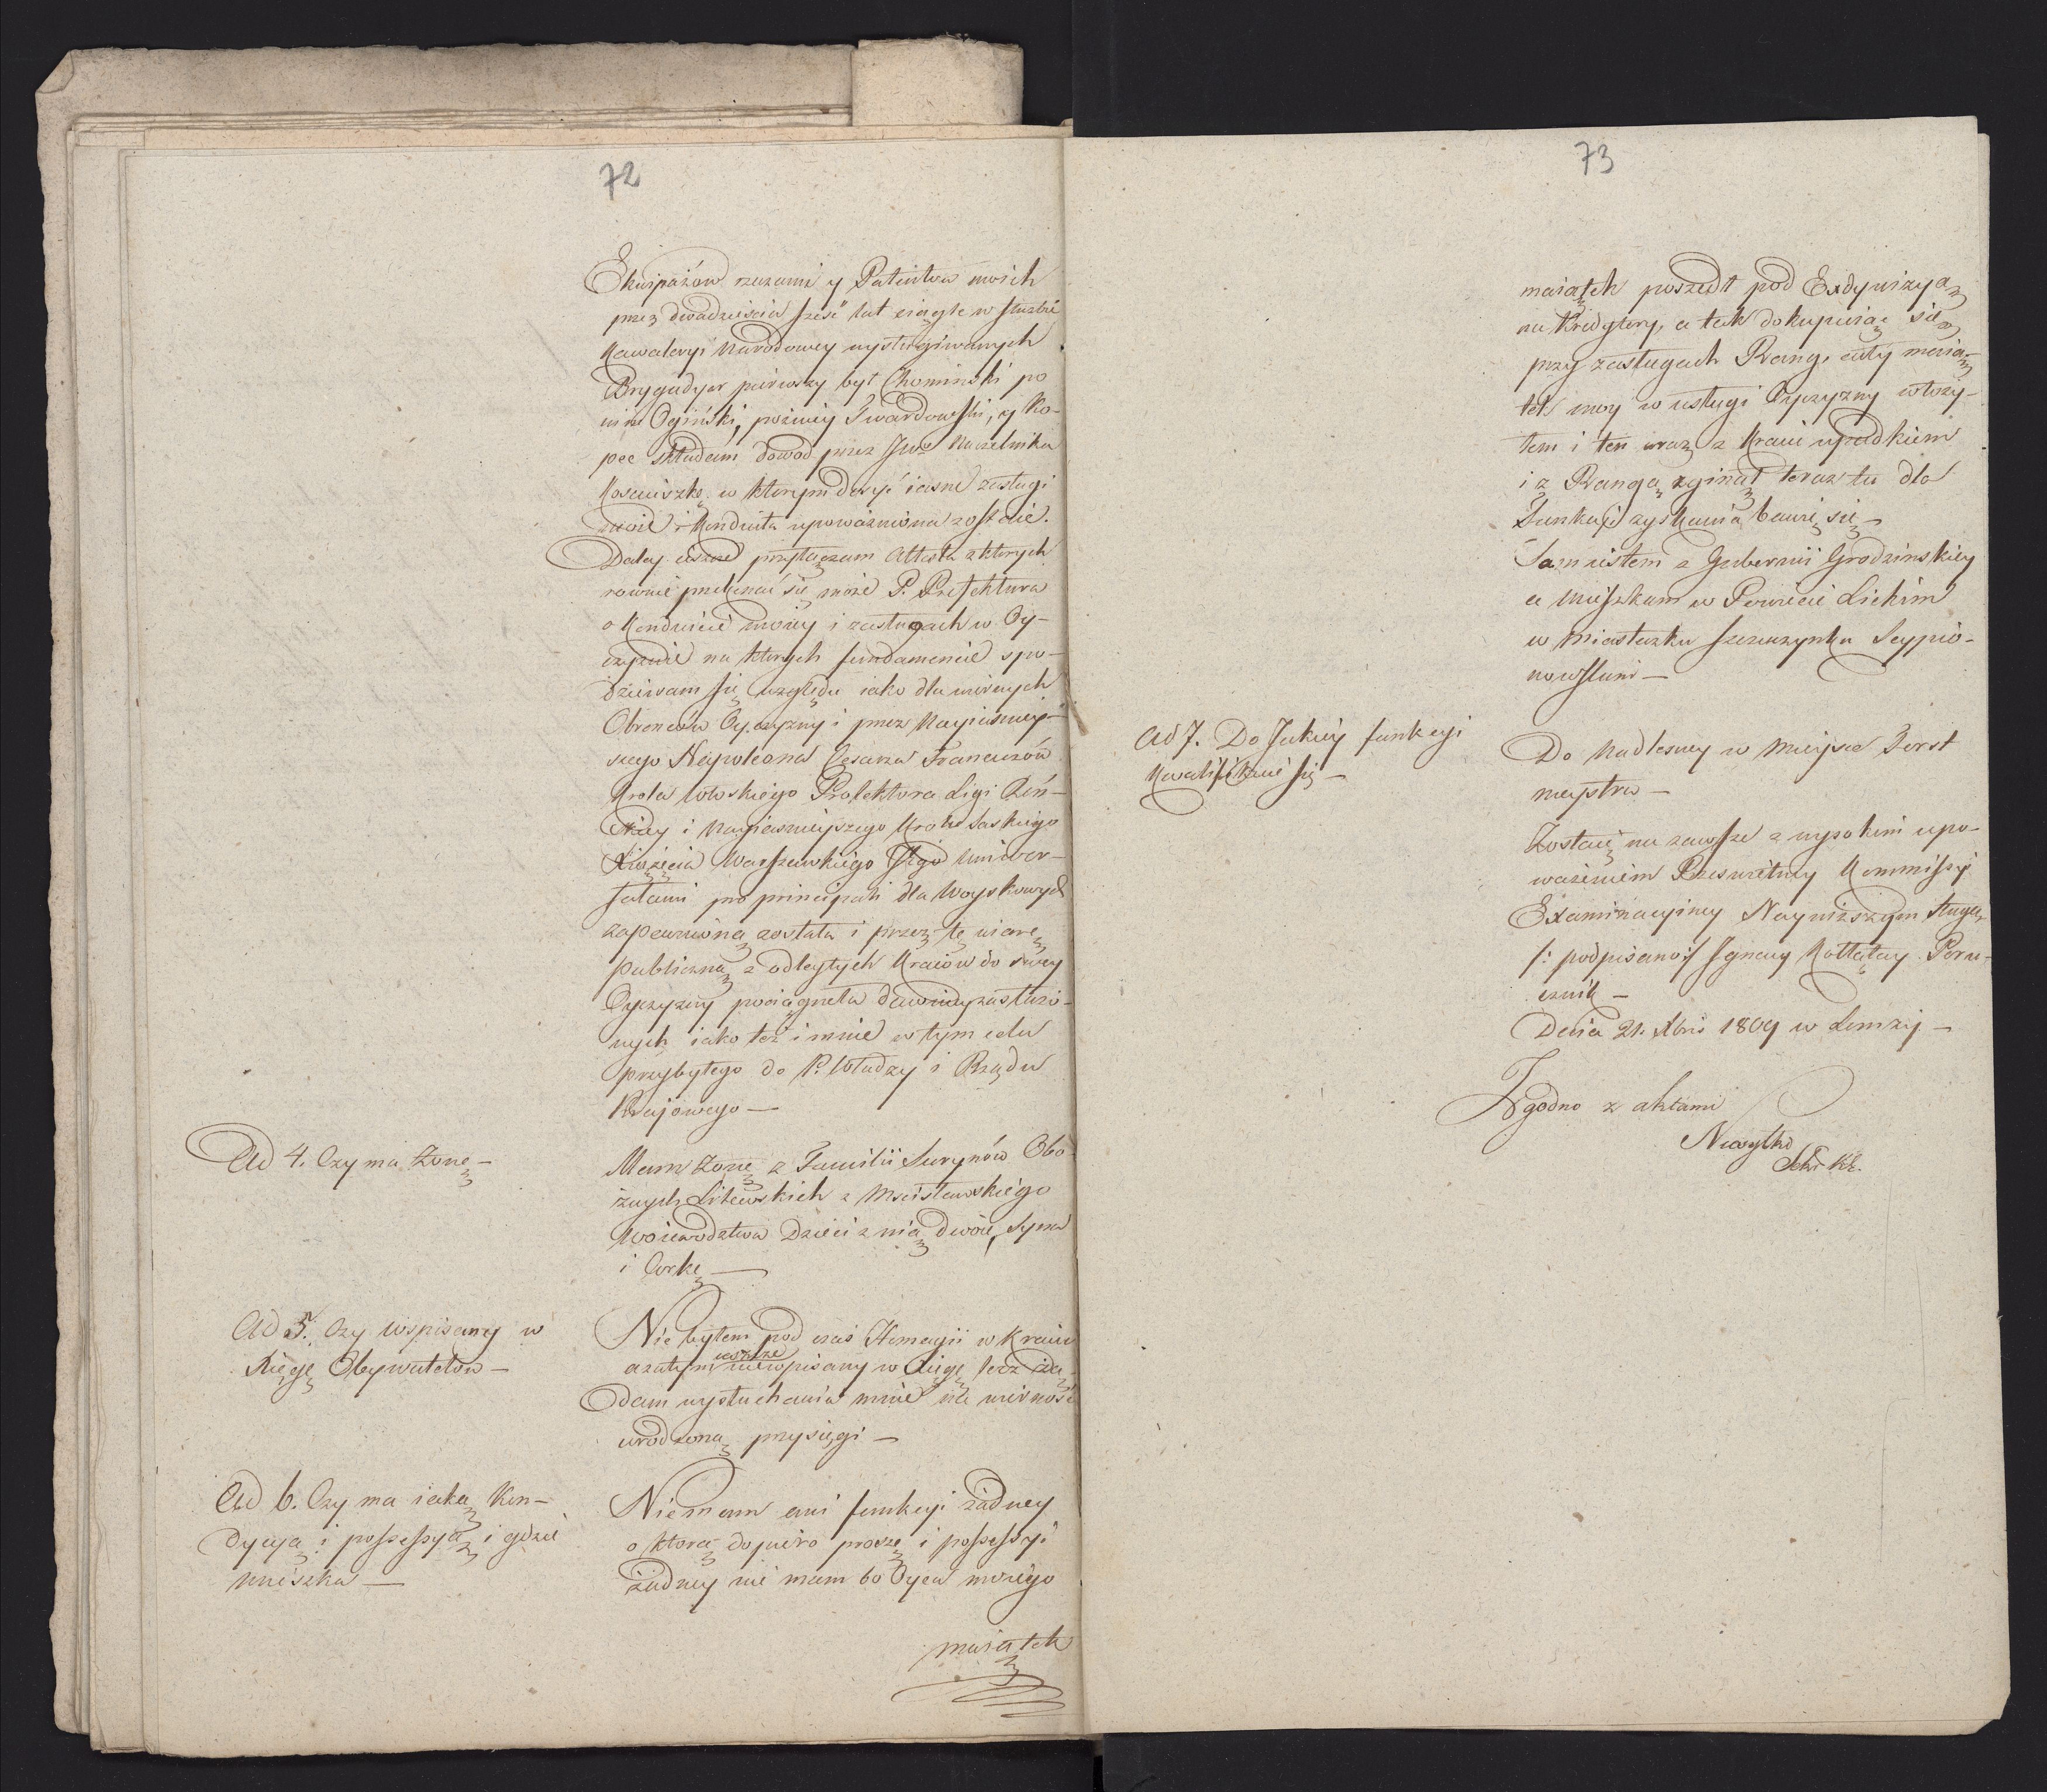 72
Ekwipażów razami y Patentów moich
przez dwadzieścia sześć lat ciągle w służbie
Kawaleryi Narodowey wysługiwanych
Brygadyer pierwszy był Chomiński po
nim Ogiński, pozniey Twardowski, y Ko-
peć składam dowod przez Jwo Naczelnika
Kosciuszkę w ktorym dosyć iasne zasługi
moie i Konduita upoważniona zostaie.
Daley ieszcze przyłączam Attesta z ktorych
rownie przekonać się może P. Prefektura
o Konduicie moiey i zasługach w Oy-
czyznie na ktorych fundamencie spo-
dziewam się względu iako dla wiernych
Obroncow Oyczyzny i przez Nayiasniey-
szego Napoleona Cesarza Francuzów
Krola Włoskiego Protektora Ligi Reń-
skiey i Nayiasnieyszego Krola Saskiego
Xiążęcia Warszawskiego Jego Uniwer-
sałami pro principali dla Woyskowych
zapewnioną została i przez tę wiarę
publiczną z odległych Kraiow do swey
Oyczyzny pociągneła dawniey zasłużo-
nych iako też i mnie w tym celu
przybyłego do P. Władzy i Rządu
Krajowego —
Ad 4. Czy ma Żonę —
Mam Żonę z Familii Surynów Obo
żnych Litewskich z Mscisławskiego
Woiewodztwa Dzieci z nią dwoie, Syna
i Corkę —
Ad 5. Czy wpisany w
Xięgę Obywatelow —
Nie byłem pod czas Homagii w Kraiu
ieszcze
a zatym niewpisany w Xięgę, lecz żą-
dam wysłuchania mnie na wierność
urodzoną przysięgi —
Ad 6. Czy ma iaką Kon-
dycyą i possessyą i gdzie
mieszka —
Niemam ani funkcyi żadney
o ktorą dopiero proszę i possessyi
żadney nie mam bo Oyca moiego
maiątek
73
maiątek poszedł pod Exdywizyą
na Kredytory, a tak dokupuiąc się
przy zasługach Rang, cały maią-
tek moy w usługi Oyczyzny włoży-
łem i ten wraz z Kraiu upadkiem
i z Rangą zginął teraz tu dla
Funkcyi zyskania bawię się —
Sam iestem z Gubernii Grodzinskiey
a mieszkam w Powiecie Lickim
w Miasteczku Szczuczynku Scypio-
nowskim —
Ad 7. Do Jakiey funkcyi
Kwalifikuie się —
Do Nadlesney w mieysce Forst
meystra —
Zostaię na zawsze z wysokim upo-
ważeniem Przeswietney Kommissyi
Examinacyiney Nayniższym sługą
/: podpisano:/ Ignacy Kołłątay Poru-
cznik —
Dnia 21. Xbris 1809 w Łomży —
Zgodno z aktami